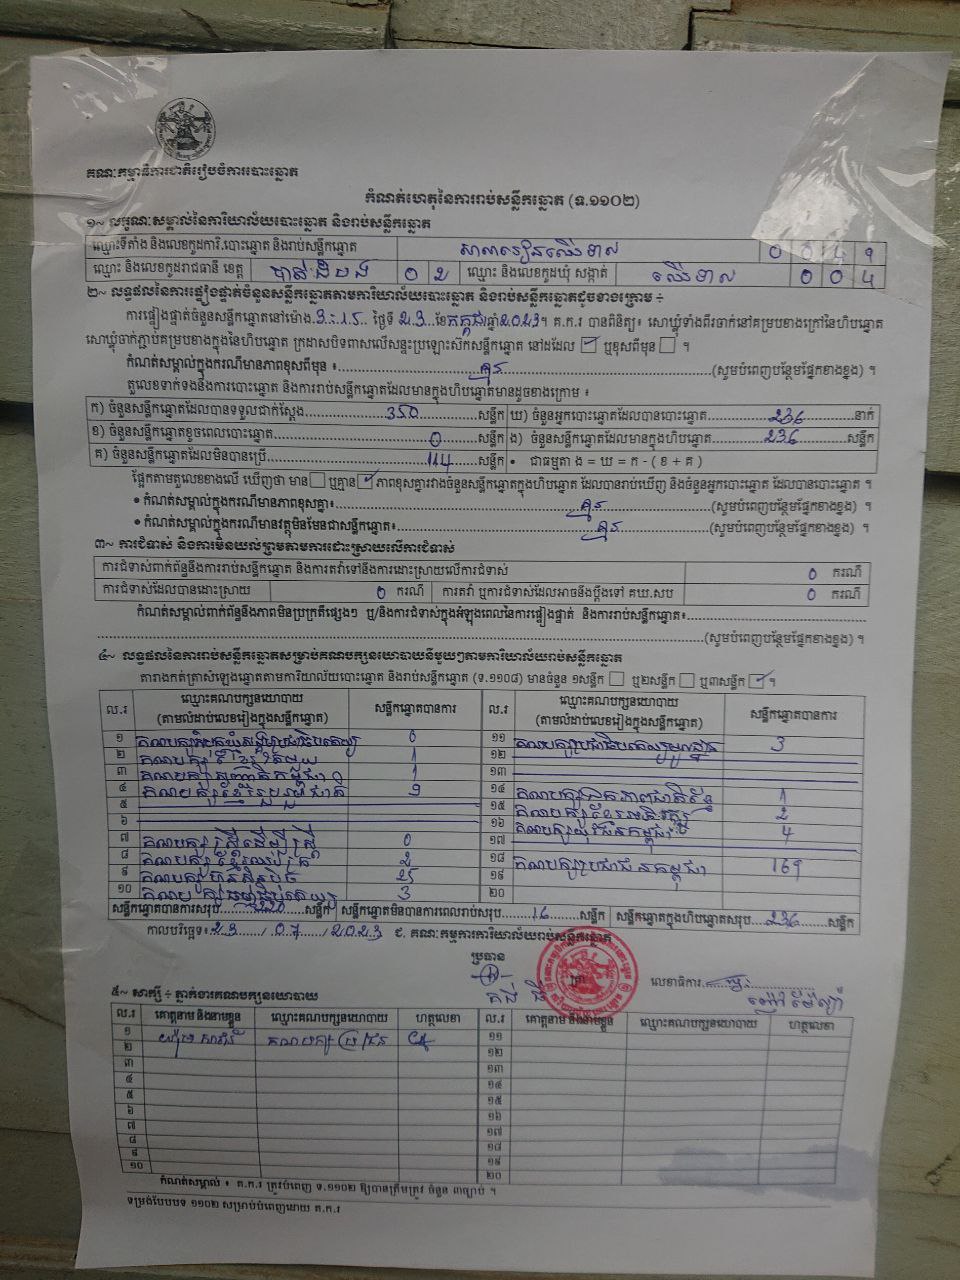 គណៈកម្មាធិការជាតិរៀបចំការបោះឆ្នោត
កំណត់ហេតុនៃការរាប់សន្លឹកឆ្នោត (ទ.១១០២)
១~ លក្ខណៈសម្គាល់នៃការិយាល័យបោះឆ្នោត និងរាប់សន្លឹកឆ្នោត
ឈ្មោះទីតាំង និងលេខកូដការិ.បោះឆ្នោត និងរាប់សន្លឹកឆ្នោត សាលារៀនឈើទាល 0 0 4 9
ឈ្មោះ និងលេខកូដរាជធានី ខេត្ត បាត់ដំបង 0 2 ឈ្មោះ និងលេខកូដឃុំ សង្កាត់ ឈើទាល 0 0 4
២~ លទ្ធផលនៃការផ្ទៀងផ្ទាត់ចំនួនសន្លឹកឆ្នោតតាមការិយាល័យបោះឆ្នោត និងរាប់សន្លឹកឆ្នោតដូចខាងក្រោម ÷
ការផ្ទៀងផ្ទាត់ចំនួនសន្លឹកឆ្នោតនៅម៉ោង 3:15 ថ្ងៃទី 23 ខែ កក្កដា ឆ្នាំ 2023។ គ.ក.រ បានពិនិត្យ៖ សោឃ្លុំទាំងពីរចាក់នៅគម្របខាងក្រៅនៃហិបឆ្នោត
សោឃ្លុំចាក់ភ្ជាប់គម្របខាងក្នុងនៃហិបឆ្នោត ក្រដាសបិទពាសលើសន្ទះប្រឡោះស៊កសន្លឹកឆ្នោត នៅដដែល ✓ ឬខុសពីមុន ។
កំណត់សម្គាល់ក្នុងករណីមានភាពខុសពីមុន ៖ គ្មាន (សូមបំពេញបន្ថែមផ្នែកខាងខ្នង) ។
តួលេខទាក់ទងនឹងការបោះឆ្នោត និងការរាប់សន្លឹកឆ្នោតដែលមានក្នុងហិបឆ្នោតមានដូចខាងក្រោម ៖
ក) ចំនួនសន្លឹកឆ្នោតដែលបានទទួលជាក់ស្តែង 350 សន្លឹក ឃ) ចំនួនអ្នកបោះឆ្នោតដែលបានបោះឆ្នោត 236 នាក់
ខ) ចំនួនសន្លឹកឆ្នោតខូចពេលបោះឆ្នោត 0 សន្លឹក ង) ចំនួនសន្លឹកឆ្នោតដែលមានក្នុងហិបឆ្នោត 236 សន្លឹក
គ) ចំនួនសន្លឹកឆ្នោតដែលមិនបានប្រើ 114 សន្លឹក • ជាធម្មតា ង = ឃ = ក - ( ខ + គ )
ផ្អែកតាមតួលេខខាងលើ ឃើញថា មាន ឬគ្មាន ✓ ភាពខុសគ្នារវាងចំនួនសន្លឹកឆ្នោតក្នុងហិបឆ្នោត ដែលបានរាប់ឃើញ និងចំនួនអ្នកបោះឆ្នោត ដែលបានបោះឆ្នោត ។
• កំណត់សម្គាល់ក្នុងករណីមានភាពខុសគ្នា៖ គ្មាន (សូមបំពេញបន្ថែមផ្នែកខាងខ្នង) ។
• កំណត់សម្គាល់ក្នុងករណីមានវត្ថុមិនមែនជាសន្លឹកឆ្នោត៖ គ្មាន (សូមបំពេញបន្ថែមផ្នែកខាងខ្នង) ។
៣~ ការជំទាស់ និងការមិនយល់ព្រមតាមការដោះស្រាយលើការជំទាស់
ការជំទាស់ពាក់ព័ន្ធនឹងការរាប់សន្លឹកឆ្នោត និងការតវ៉ាទៅនឹងការដោះស្រាយលើការជំទាស់ 0 ករណី
ការជំទាស់ដែលបានដោះស្រាយ 0 ករណី ការតវ៉ា ឬការជំទាស់ដែលអាចនឹងប្តឹងទៅ គឃ.សប 0 ករណី
កំណត់សម្គាល់ពាក់ព័ន្ធនឹងភាពមិនប្រក្រតីផ្សេងៗ ឬ/និងការជំទាស់ក្នុងអំឡុងពេលនៃការផ្ទៀងផ្ទាត់ និងការរាប់សន្លឹកឆ្នោត៖
(សូមបំពេញបន្ថែមផ្នែកខាងខ្នង) ។
៤~ លទ្ធផលនៃការរាប់សន្លឹកឆ្នោតសម្រាប់គណបក្សនយោបាយនីមួយៗតាមការិយាល័យរាប់សន្លឹកឆ្នោត
តារាងកត់ត្រាសំឡេងឆ្នោតតាមការិយាល័យបោះឆ្នោត និងរាប់សន្លឹកឆ្នោត (ទ.១១០៨) មានចំនួន ១សន្លឹក ឬ២សន្លឹក ឬ៣សន្លឹក ✓ ។
ល.រ ឈ្មោះគណបក្សនយោបាយ (តាមលំដាប់លេខរៀងក្នុងសន្លឹកឆ្នោត) សន្លឹកឆ្នោតបានការ ល.រ ឈ្មោះគណបក្សនយោបាយ (តាមលំដាប់លេខរៀងក្នុងសន្លឹកឆ្នោត) សន្លឹកឆ្នោតបានការ
១ 0 ១១ 3
២ គណបក្សខ្មែរតែមួយ 1 ១២
៣ 1 ១៣
៤ គណបក្សខ្មែររួបរួមជាតិ 9 ១៤ គណបក្សឯកភាពជាតិខ្មែរ 1
៥ ១៥ គណបក្សខ្មែរអភិវឌ្ឍ 2
៦ ១៦ គណបក្សយុវជនកម្ពុជា 4
៧ គណបក្សស្ត្រីដើម្បីស្ត្រី 0 ១៧
៨ គណបក្សខ្មែរឈប់ក្រ 2 ១៨ គណបក្សប្រជាជនកម្ពុជា 169
៩ គណបក្សហ៊្វុនស៊ិនប៉ិច 25 ១៩
១០ 3 ២០
សន្លឹកឆ្នោតបានការសរុប 220 សន្លឹក សន្លឹកឆ្នោតមិនបានការពេលរាប់សរុប 16 សន្លឹក សន្លឹកឆ្នោតក្នុងហិបឆ្នោតសរុប 236 សន្លឹក
កាលបរិច្ឆេទ៖ 23 / 07 / 2023 ជ. គណៈកម្មការការិយាល័យរាប់សន្លឹកឆ្នោត
ប្រធាន
ត្រា លេខាធិការ
៥~ សាក្សី ÷ ភ្នាក់ងារគណបក្សនយោបាយ
ល.រ គោត្តនាម និងនាមខ្លួន ឈ្មោះគណបក្សនយោបាយ ហត្ថលេខា ល.រ គោត្តនាម និងនាមខ្លួន ឈ្មោះគណបក្សនយោបាយ ហត្ថលេខា
១ ១១
២ ១២
៣ ១៣
៤ ១៤
៥ ១៥
៦ ១៦
៧ ១៧
៨ ១៨
៩ ១៩
១០ ២០
កំណត់សម្គាល់ ៖ គ.ក.រ ត្រូវបំពេញ ទ.១១០២ ឱ្យបានត្រឹមត្រូវ ចំនួន ៣ច្បាប់ ។
ទម្រង់បែបបទ ១១០២ សម្រាប់បំពេញដោយ គ.ក.រ